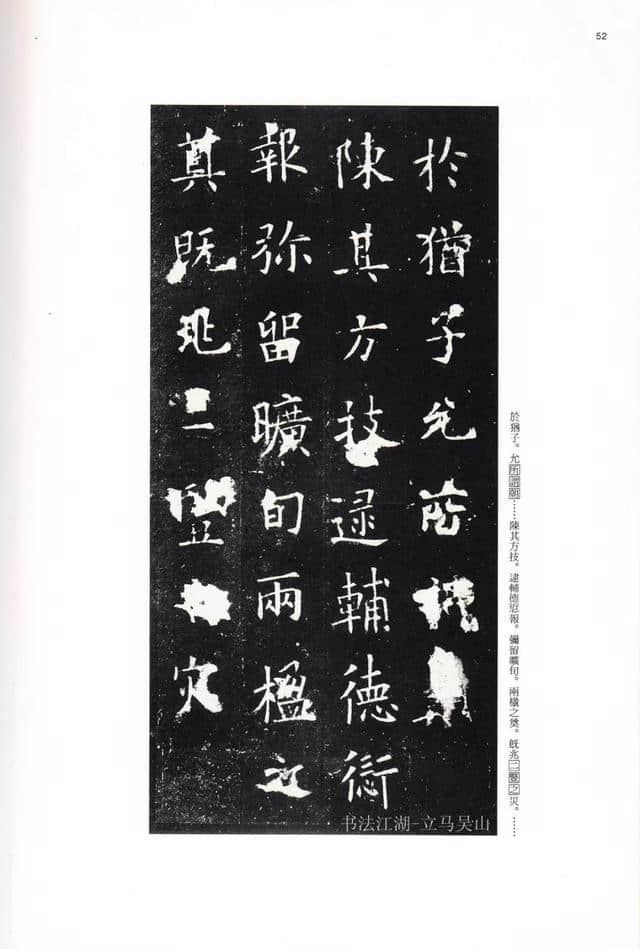 52
於猶子允所
陳其方技逮輔德愆
報弥留曠旬兩楹之
奠既兆二豎灾
於猶子。允所謂朝……陳其方技。逮輔德愆報。彌留曠旬。兩楹之奠。旣兆二豎之災。……
书法江湖-立马吴山